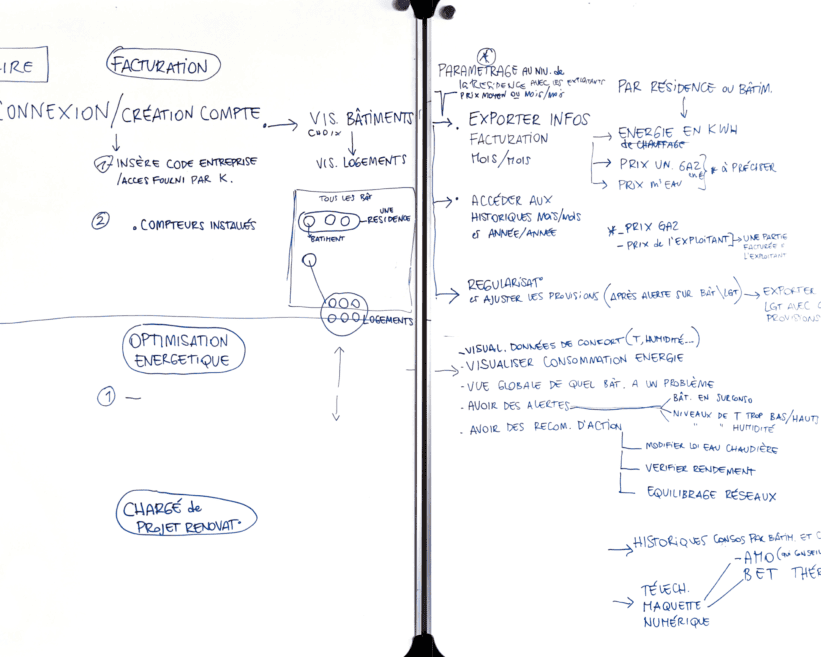 IRE
FACTURATION
CONNEXION/CRÉATION COMPTE.
VIS. BÂTIMENTS
CHOIX
VIS. LOGEMENTS
1 INSÈRE CODE ENTREPRISE
/ACCES FOURNI PAR K.
2 . COMPTEURS INSTALLÉS
TOUS LES BÂT
UNE
RESIDENCE
BATIMENT
LOGEMENTS
OPTIMISATION
ENERGETIQUE
1 —
CHARGÉ de
PROJET RENOVAT°
*
PARAMETRAGE AU NIV. de
la RESIDENCE AVEC LES EXPLOITANTS
PRIX MOYEN OU MOIS/MOIS
PAR RÉSIDENCE OU BÂTIM.
. EXPORTER INFOS
FACTURATION
MOIS/MOIS
ENERGIE EN KWH
de CHAUFFAGE
PRIX UN. GAZ
PRIX m³EAU
* À PRÉCISER
. ACCÉDER AUX
HISTORIQUES MOIS/MOIS
et ANNÉE/ANNÉE
*_ PRIX GAZ
- PRIX de l'EXPLOITANT
UNE PARTIE
FACTURÉE
L'EXPLOITANT
REGULARISAT°
et AJUSTER LES PROVISIONS (APRÈS ALERTE SUR BÂT\LGT)
EXPORTER
LGT AVEC
PROVISIONS
- VISUAL. DONNÉES DE CONFORT (T, HUMIDITÉ...)
- VISUALISER CONSOMMATION ENERGIE
- VUE GLOBALE DE QUEL BÂT. A UN PROBLÈME
- AVOIR DES ALERTES
BÂT. EN SURCONSO
NIVEAUX DE T TROP BAS/HAUTS
" " HUMIDITÉ
. AVOIR DES RECOM. D'ACTION
MODIFIER LOI EAU CHAUDIÈRE
VERIFIER RENDEMENT
EQUILIBRAGE RÉSEAUX
HISTORIQUES CONSOS PAR BÂTIM. ET
- AMO (ou CONSEIL
BET THÉR
TÉLECH.
MAQUETTE
NUMÉRIQUE